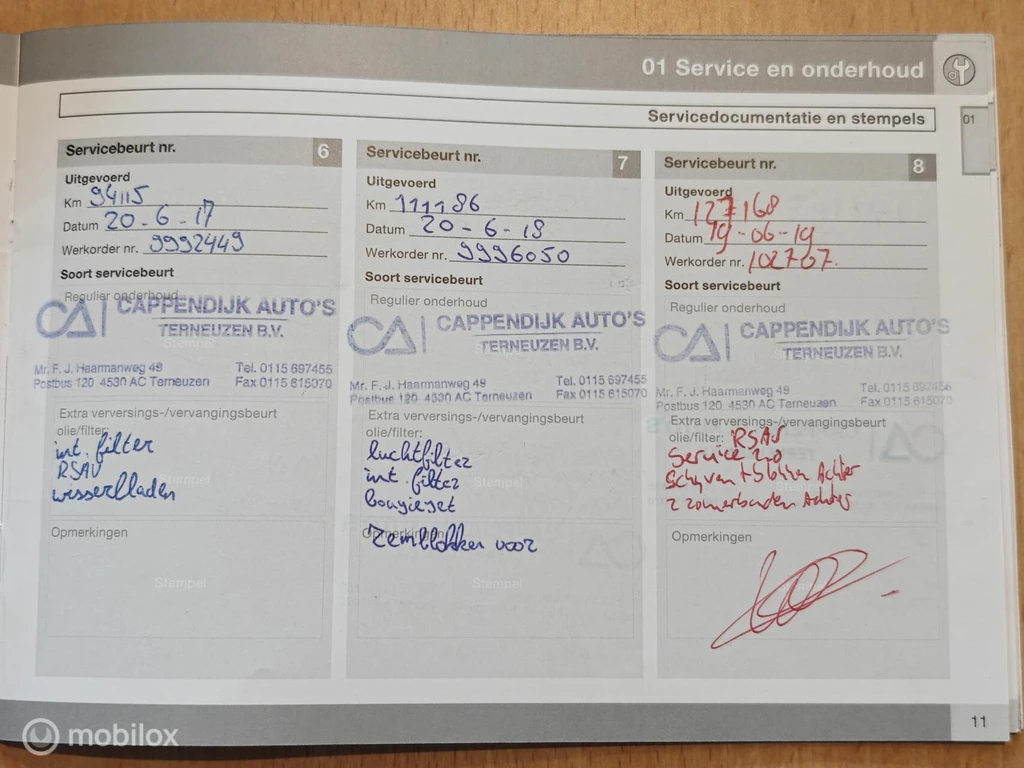 01 Service en onderhoud
Servicedocumentatie en stempels
01
Servicebeurt nr. 6
Uitgevoerd
Km 94115
Datum 20-6-17
Werkorder nr. 9992449
Soort servicebeurt
Regulier onderhoud
CAPPENDIJK AUTO'S
TERNEUZEN B.V.
Stempel
Mr. F. J. Haarmanweg 49 Tel. 0115 697455
Postbus 120 4530 AC Terneuzen Fax 0115 615070
Extra verversings-/vervangingsbeurt
olie/filter:
int. filter
RSAV
wisserbladen
Stempel
Opmerkingen
Stempel
Servicebeurt nr. 7
Uitgevoerd
Km 111186
Datum 20-6-18
Werkorder nr. 9996050
Soort servicebeurt
Regulier onderhoud
CAPPENDIJK AUTO'S
TERNEUZEN B.V.
Mr. F. J. Haarmanweg 49 Tel. 0115 697455
Postbus 120 4530 AC Terneuzen Fax 0115 615070
Extra verversings-/vervangingsbeurt
olie/filter:
luchtfilter
int. filter
bougieset
Stempel
Opmerkingen
Remblokken voor
Stempel
Servicebeurt nr. 8
Uitgevoerd
Km 127168
Datum 19-06-19
Werkorder nr. 102707
Soort servicebeurt
Regulier onderhoud
CAPPENDIJK AUTO'S
TERNEUZEN B.V.
Mr. F. J. Haarmanweg 49 Tel. 0115 697455
Postbus 120 4530 AC Terneuzen Fax 0115 615070
Extra verversings-/vervangingsbeurt
olie/filter: RSAV
Service
Schijven + blokken Achter
2 zomerbanden Achter
Opmerkingen
11
mobilox